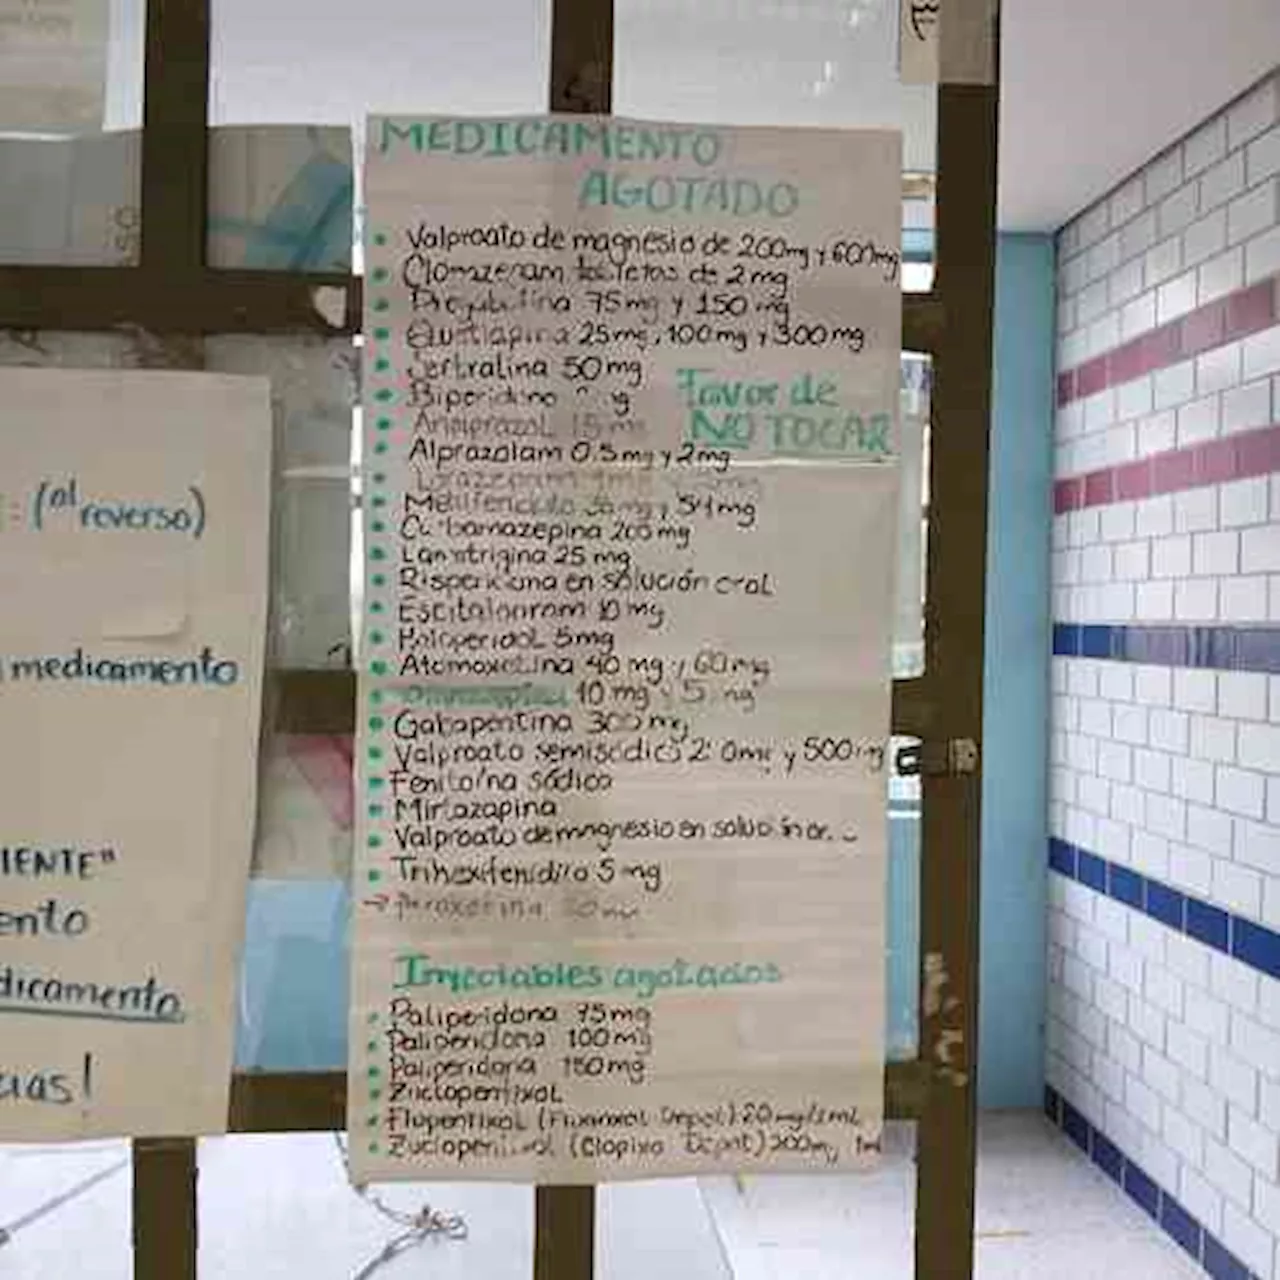 MEDICAMENTO
AGOTADO
Valproato de magnesio de 200mg y 600mg
Clonazepam tabletas de 2mg
Pregabalina 75mg y 150mg
Quetiapina 25mg, 100mg y 300mg
Sertralina 50mg
Favor de
Biperideno
NO TOCAR
Aripiprazol 15mg
Alprazolam 0.5mg y 2mg
Metilfenidato 36mg y 54mg
Carbamazepina 200mg
Lamotrigina 25mg
Risperidona en solución oral
Escitalopram 10mg
Haloperidol 5mg
Atomoxetina 40 mg y 60mg
10 mg y 5 mg
Gabapentina 300 mg
Valproato semisódico 250mg y 500mg
Fenitoína sódica
Mirtazapina
Valproato de magnesio en solución
Trihexifenidilo 5mg
→ Paroxetina 20mg
Inyectables agotados
Paliperidona 75mg
Paliperidona 100mg
Paliperidona 150mg
Zuclopentixol
Flupentixol (Fluanxol Depot) 20mg/1mL
Zuclopentixol (Clopixol Depot) 200mg 1mL
(al reverso)
medicamento
IENTE"
ento
dicamento
cias!